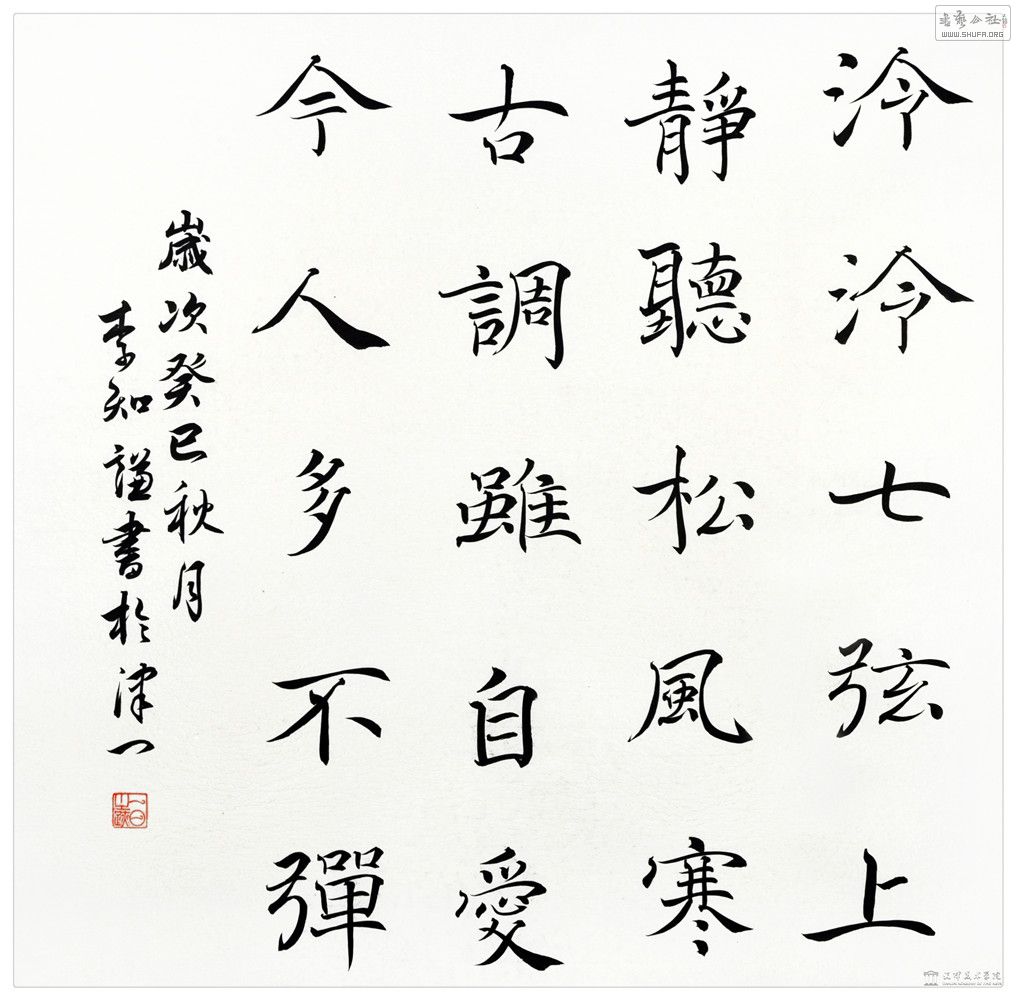 泠泠七弦上
靜聽松風寒
古調雖自愛
今人多不彈
歲次癸巳秋月
李知謙書於津一
書藝公社
WWW.SHUFA.ORG